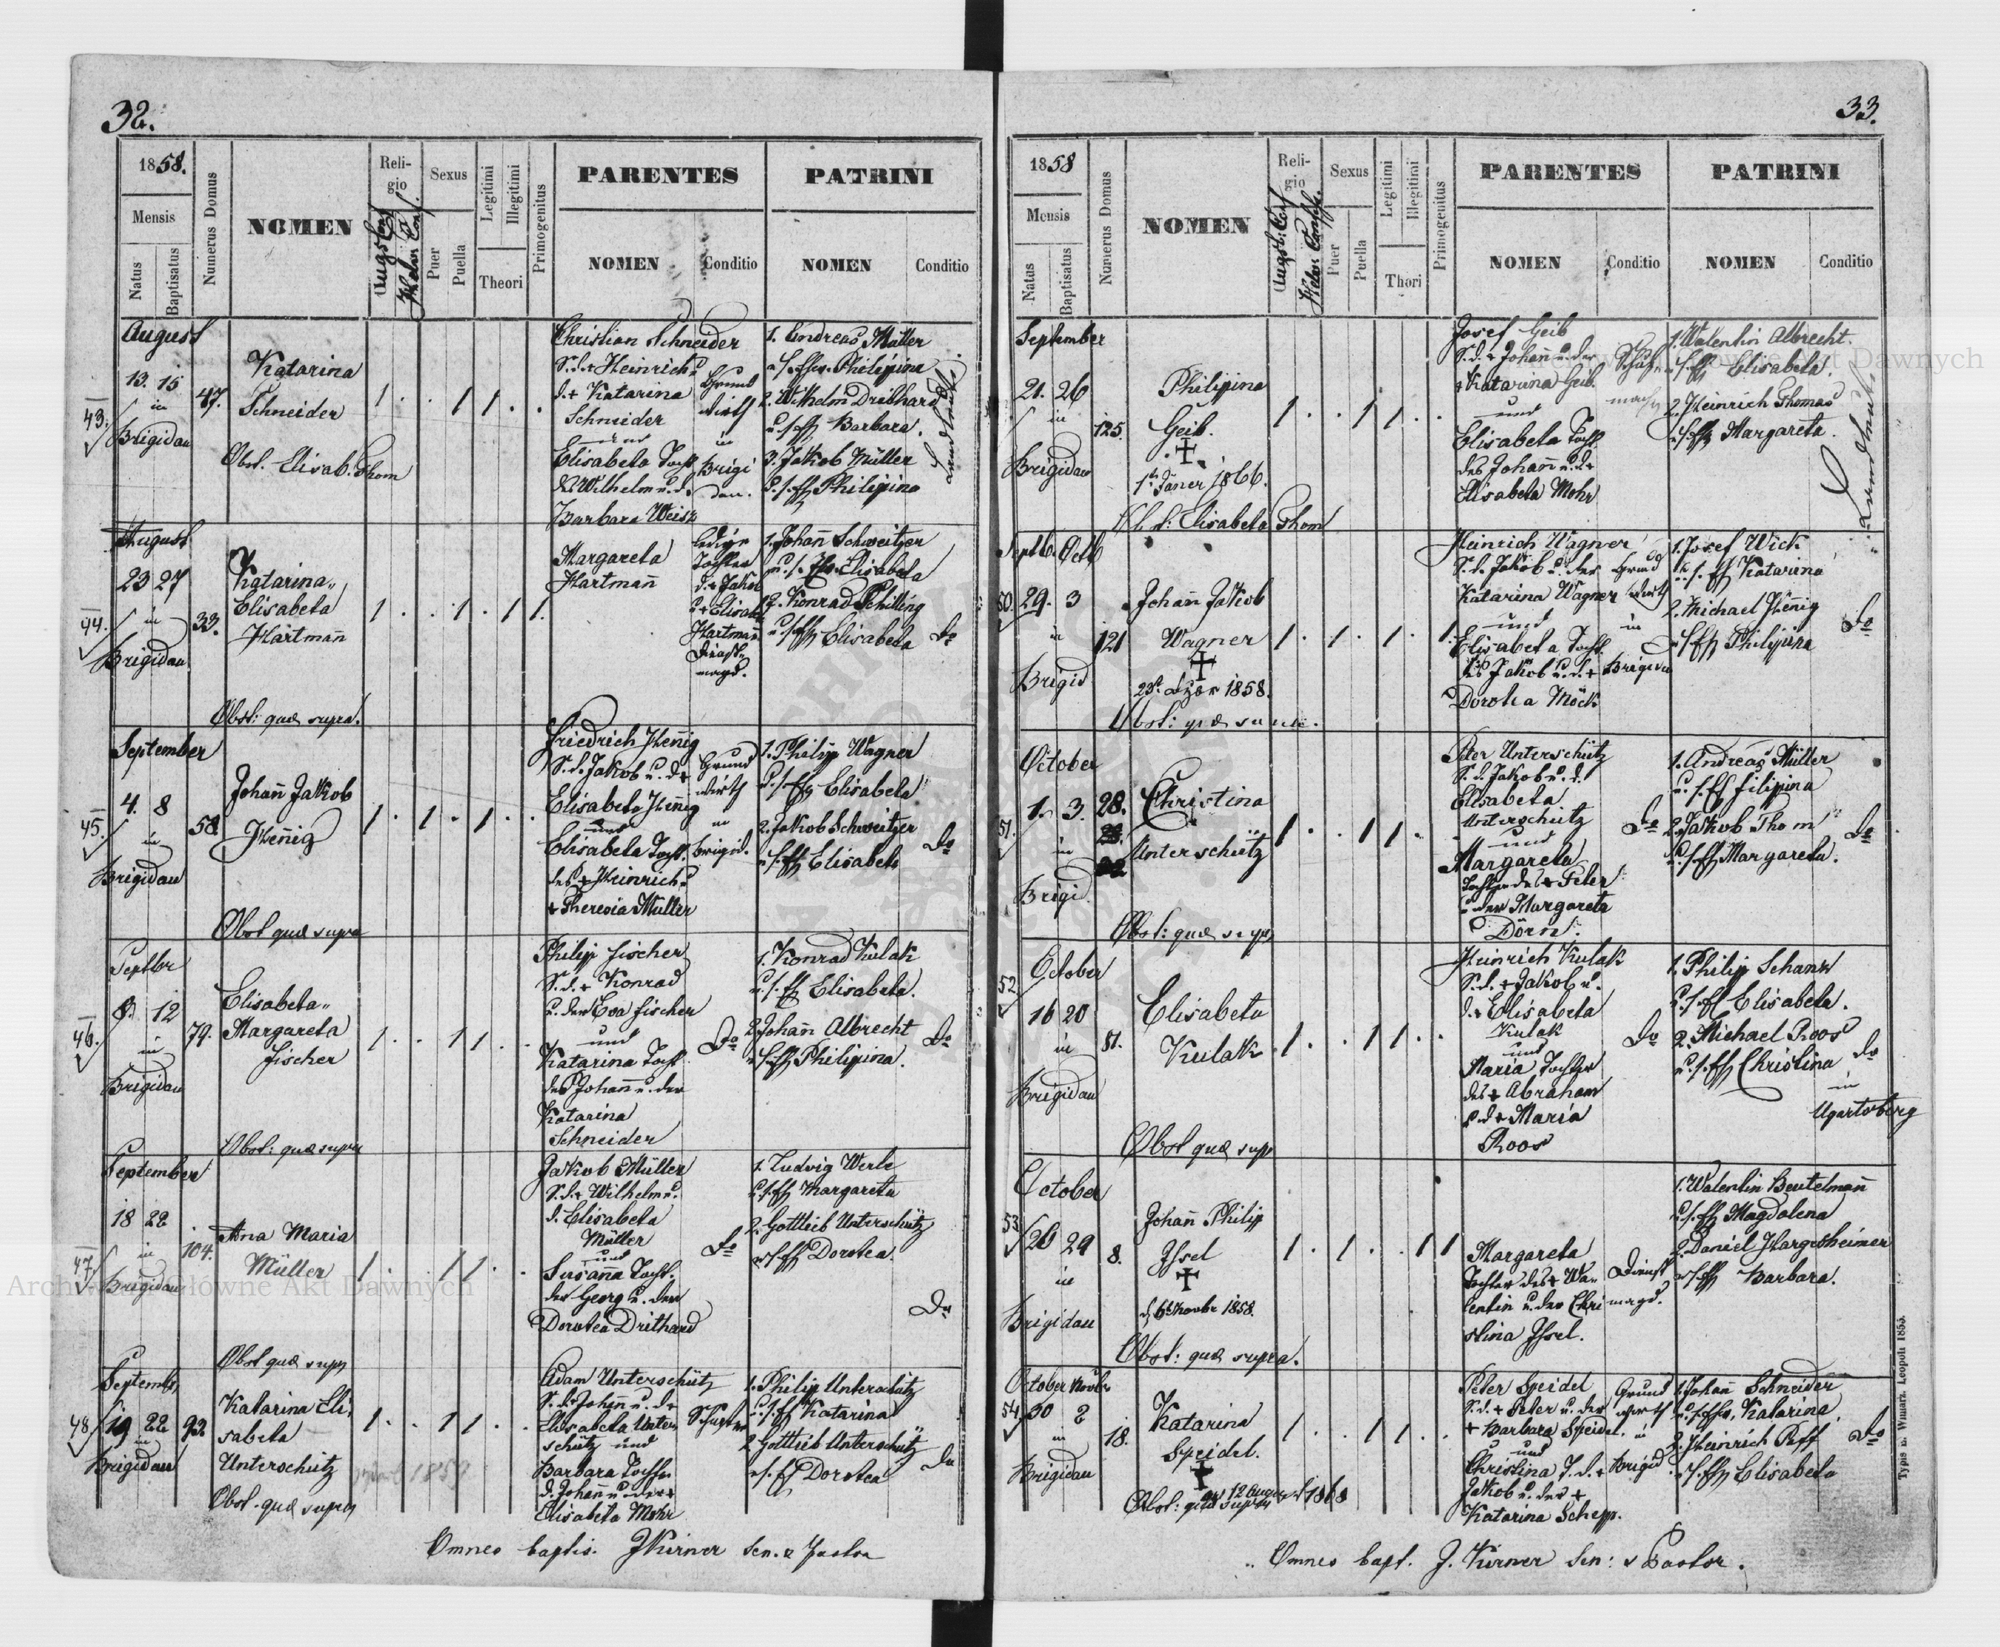 32.
1858.
Mensis
Natus
Baptisatus
Numerus Domus
NOMEN
Religio
Augsb. Conf.
Helv. Conf.
Sexus
Puer
Puella
Legitimi
Illegitimi
Theori
Primogenitus
PARENTES
NOMEN
Conditio
PATRINI
NOMEN
Conditio
August
43.
13. 15
in
Brigidau
47.
Katarina
Schneider
Obst. Elisab. Thom
Christian Schneider
S. d. + Heinrich u
d. + Katarina
Schneider
und
Elisabeta Tocht.
des Wilhelm u. d.
Barbara Weisz
Grund
wirth
in
Brigi
dau.
1. Andreas Müller
u. s. Ehfr. Philipina
2. Wilhelm Drithard
u. s. Eff Barbara.
3. Jakob Müller
u. s. Eff Philipina
Landleute
August
44.
23 27
in
Brigidau
33.
Katarina
Elisabeta
Hartmañ
Obst: quæ supra.
Margareta
Hartmañ
ledige
Tochter
d. + Jakob
u + Elisab
Hartmañ
Dinst-
magd.
1. Johañ Schweitzer
u. s. Efr Elisabeta
2. Konrad Schilling
u. s. Eff Elisabeta
do
September
45.
4. 8
in
Brigidau
58
Johañ Jakob
Heñig
Obst quæ supra
Friedrich Heñig
S. d. Jakob u. d. +
Elisabeta Heñig
und
Elisabeta Tocht.
des + Heinrich u
+ Theresia Müller
Grund
wirth
in
Brigid.
1. Philipp Wagner
u. s. Eff Elisabeta
2. Jakob Schweitzer
u. s. Eff Elisabeta
do
Septbr
46.
8 12
in
Brigidau
79.
Elisabeta
Margareta
Fischer
Obst: quæ supra
Philip Fischer
S. d. + Konrad
u. der Eva Fischer
und
Katarina Tocht
des Johañ u. der
Katarina
Schneider
do
1. Konrad Kulak
u. s. Eff Elisabeta.
2. Johañ Albrecht
u. s. Eff Philipina.
do
September
47.
18 22
in
Brigidau
104.
Ana Maria
Müller
Obst quæ supra
Jakob Müller
S. d. + Wilhelm u.
d. Elisabeta
Müller
und
Susaña Tocht.
des Georg u. der
Dorotea Drithard
do
1. Ludvig Werle
u. s. Eff Margareta
2. Gottlieb Unterschütz
u. s. Eff Dorotea.
do
Septemb.
48.
19 22
in
Brigidau
92
Katarina Eli
sabeta
Unterschütz
Obst. quæ supra
Adam Unterschütz
S. d. Johañ u. d. +
Elisabeta Unter
schütz und
Barbara Tochter
d. Johañ u. der +
Elisabeta Mohr
Schuster
1. Philip Unterschütz
u. s. Eff Katarina
2. Gottlieb Unterschütz
u. s. Eff Dorotea
do
Omnes baptis. J Kirner Sen. & Pastor
33.
1858
Mensis
Natus
Baptisatus
Numerus Domus
NOMEN
Religio
Augsb: Conf
Helv. Conff.
Sexus
Puer
Puella
Legitimi
Illegitimi
Thori
Primogenitus
PARENTES
NOMEN
Conditio
PATRINI
NOMEN
Conditio
September
21. 26
in
Brigidau
125.
Philipina
Geib.
+
1ten Jäner 1866.
Obst: Elisabeta Thom
Josef Geib
S. d. + Johañ u. der
+ Katarina Geib.
und
Elisabeta Tocht
des Johañ u. d. +
Elisabeta Mohr
Schuh-
mach
1. Walentin Albrecht.
u. s. Eff Elisabeta.
2. Heinrich Thomas
u. s. Eff Margareta.
Landleute
Septb. Octb
50.
29. 3
in
Brigid
121
Johañ Jakob
Wagner
+
23t. Dzbr 1858.
Obst: quæ supra.
Heinrich Wagner
S. d. Jakob u. der
Katarina Wagner
und
Elisabeta Tocht.
des Jakob u. d. +
Dorotea Möck
Grund
wirth
in
Brigidau
1. Josef Wick
u. s. Eff Katarina
2. Michael Heñig
u. s. Eff Philipina
do
October
51.
1. 3.
in
Brigid.
28.
Christina
Unterschütz
Obst: quæ supra
Peter Unterschütz
S. d. Jakob u. d.
Elisabeta
Unterschütz
und
Margareta
Tochter des + Peter
u. der Margareta
Dörn.
do
1. Andreas Müller
u. s. Eff Filipina
2. Jakob Thom
u. s. Eff Margareta.
do
October
52
16 20
in
Brigidau
51.
Elisabeta
Kulak
Obst quæ supr
Heinrich Kulak
S. d. + Jakob u.
d. + Elisabeta
Kulak
und
Maria Tochter
des + Abraham
u. d. + Maria
Roos
do
1. Philip Schank
u. s. Eff Elisabeta.
2. Michael Roos
u. s. Eff Christina
do
in
Ugartsberg
October
53
26 29
in
Brigidau
8.
Johañ Philip
Issel
+
d. 6t Novbr 1858.
Obst: quæ supra.
Margareta
Tochter des + Wa-
lentin u. der Chri
stina Issel.
Dienst
magd.
1. Walentin Beutelmañ
u. s. Eff Magdalena
2. Daniel Hargesheimer
u. s. Eff Barbara.
October Novbr
54
30 2
in
Brigidau
18.
Katarina
Speidel.
+
12 August 1868
Obst: quæ supra
Peter Speidel
S. d. + Peter u. der
+ Barbara Speidel.
und
Christina T. d. +
Jakob u. der +
Katarina Schepp.
Grund
wirth
in
Brigid
1. Johañ Schneider
u. s. Effr. Katarina
2. Heinrich Paff
u. s. Eff Elisabeta
do
Omnes bapt. J. Kirner Sen: & Pastor.
Typis E. Winiarz. Leopoli 1853.
Archiwum Główne Akt Dawnych